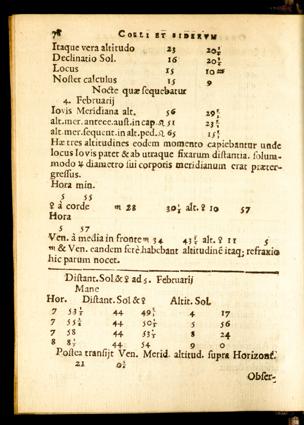 78 COELI ET SIDERVM
Itaque vera altitudo 23 20
Declinatio Sol. 16 20
Locus 15 10
Noster calculus 15 9
Nocte quæ sequebatur
4. Februarij
Iovis Meridiana alt. 56 29
alt.mer.antece.aust.in cap.♌ 51 23
alt.mer.sequent.in alt.ped.♌ 65 15
Hæ tres altitudines eodem momento capiebantur unde
locus Iovis patet & ab utraque fixarum distantia. solum-
modo ♃ diametro sui corporis meridianum erat præter-
gressus.
Hora min.
5 55
♀ à corde ♏ 28 30½ alt. ♀ 10 57
Hora
5 57
Ven. à media in fronte ♏ 34 43 alt. ♀ 11 5
♏ & Ven. eandem ferè habebant altitudinē itaq; refractio
hic parum nocet.
Distant. Sol & ♀ ad 5. Februarij
Mane
Hor. Distant. Sol & ♀ Altit. Sol.
7 53 44 49 4 17
7 55 44 50 5 56
7 58 44 53 8 24
8 8 44 54 9 0
Postea transijt Ven. Merid. altitud. supra Horizont.
21 0
Obser-